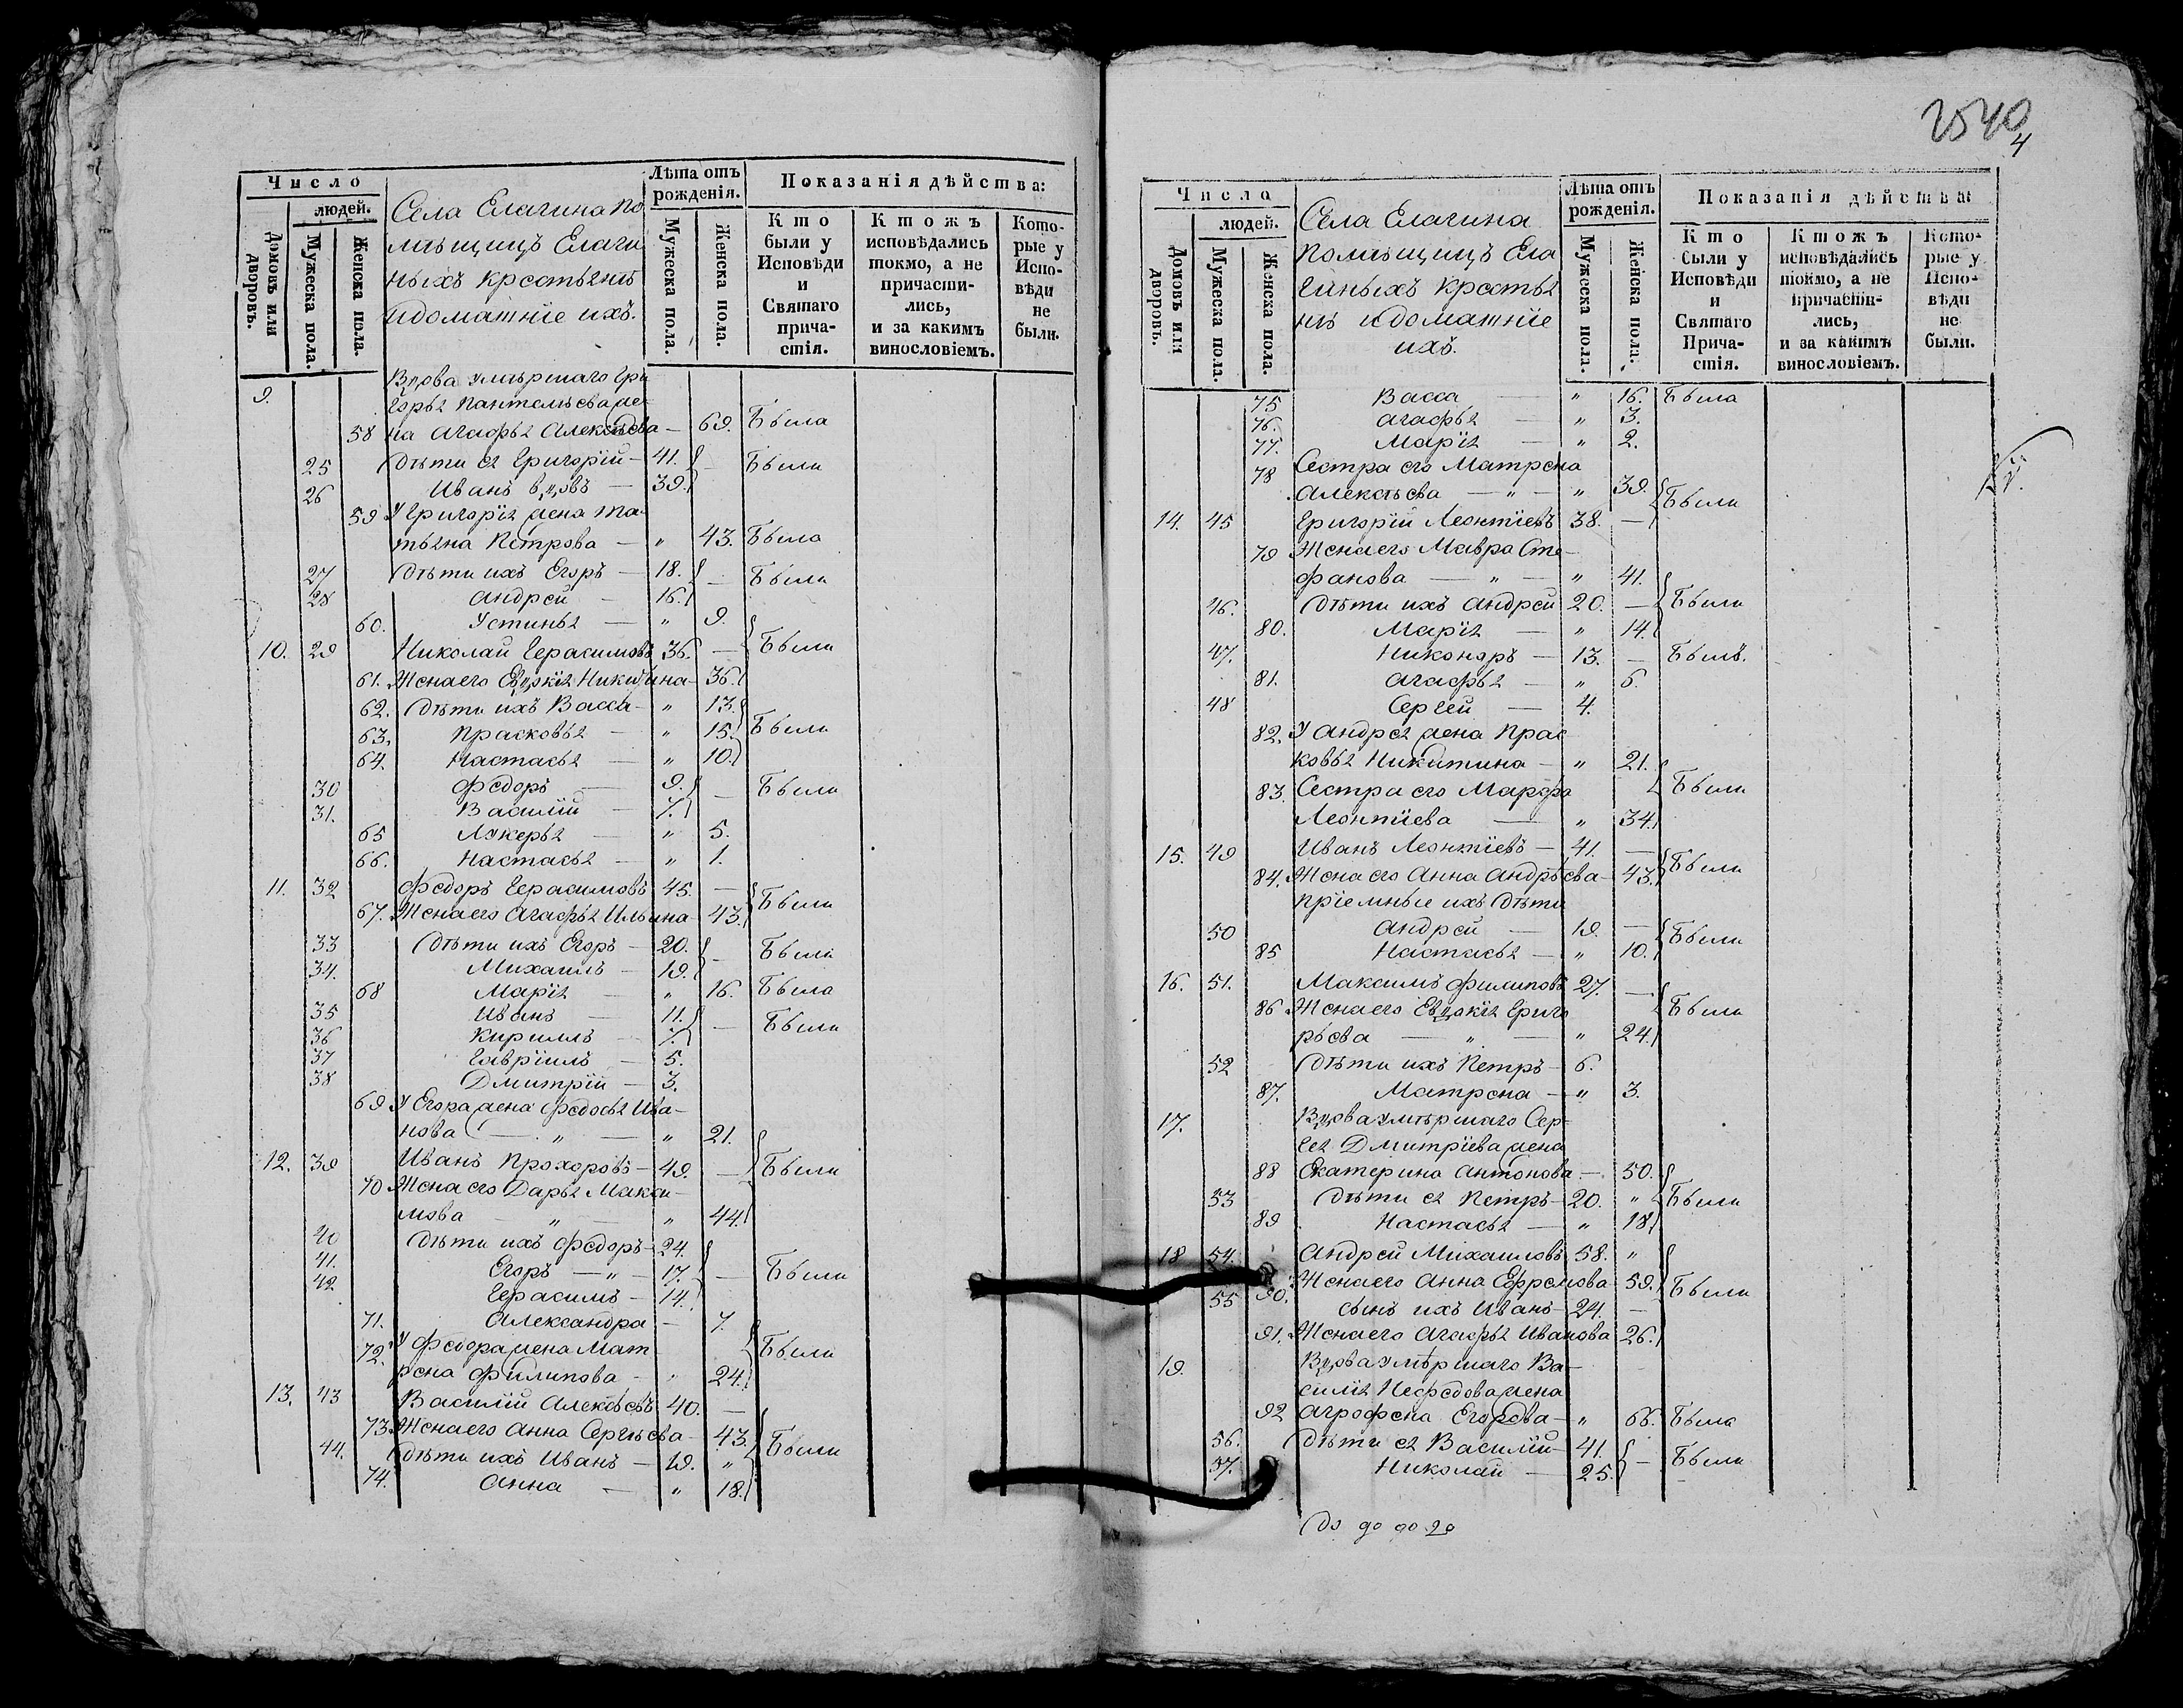 Число
людей.
Домовъ или дворовъ.
Мужеска пола.
Женска пола.
Села Елагина по
мѣщицъ Елаги
ныхъ крестьянъ
идоматнїе ихъ.
Лѣта отъ рожденія.
Мужеска пола.
Женска пола.
Показанія дѣйства:
Кто были у Исповѣди и Святаго причастія.
Ктожъ исповѣдались токмо, а не причастились, и за какимъ винословіемъ.
Которые у Исповѣди не были.
9. Вдова умѣршаго Гри
горья Пантелѣева же
58 на Агафья Алексѣева — 69. Была
25 Дѣти ея Григорїй — 41. — Были
26 Иванъ вдовъ — 39.
59 У Григорїя жена Та
тьяна Петрова — " 43. Была
27 Дѣти ихъ Егоръ — 18. — Были
28 Андрей — 16.
60. Устинья — " 9.
10. 29 Николай Герасимовъ 36. — Были
61. Жена его Евдокїя Никитина — 36.
62. Дѣти ихъ Васса — " 13.
63. Прасковья — " 15. Были
64. Настасья — " 10.
30 Федоръ — 9. — Были
31. Василїй — 7.
65 Лукерья — " 5.
66. Настасья — " 1.
11. 32 Федоръ Герасимовъ 45. — Были
67. Жена его Агафья Ильина — 43.
33 Дѣти ихъ Егоръ — 20. — Были
34. Михаилъ — 19.
68 Марїя — " 16. Была
35 Иванъ — 11. — Были
36 Кириллъ — 7.
37 Гаврїилъ — 5.
38 Дмитрїй — 3.
69 У Егора жена Федосья Ива-
нова — " — " 21.
12. 39 Иванъ Прохоровъ — 49. — Были
70 Жена его Дарья Макси-
мова — " — " 44.
40 Дѣти ихъ Федоръ — 24.
41. Егоръ — " — 17. — Были
42 Герасимъ — 14.
71. Александра — 7.
72. У Федора жена Мат
рена Филипова — " 24. Были
13. 43 Василїй Алексѣевъ 40. —
73. Жена его Анна Сергѣева — 43. Были
44. Дѣти ихъ Иванъ — 19. "
74. Анна — " 18.
2540
4
Число
людей.
Домовъ или дворовъ.
Мужеска пола.
Женска пола.
Села Елагина
помѣщицъ Ела
гиныхъ кресть
нъ идоматнїе
ихъ.
Лѣта отъ рожденія.
Мужеска пола.
Женска пола.
Показанія дѣйства:
Кто были у Исповѣди и Святаго Причастія.
Ктожъ исповѣдались токмо, а не причастились, и за какимъ винословіемъ.
Которые у Исповѣди не были.
75 Васса — " 16. Была
76. Агафья — " 3.
77. Марїя — " 2.
78 Сестра его Матрена
Алексѣева — " — " 39. Были
14. 45 Григорїй Леонтїевъ 38. —
79 Жена его Мавра Сте-
фанова — " — " 41.
46. Дѣти ихъ Андрей 20. — Были
80. Марїя — " 14.
47. Никоноръ — 13. — Былъ.
81. Агафья — " 6.
48 Сергей — 4.
82. У Андрея жена Прас
ковья Никитина — " 21.
83. Сестра его Марфа Были
Леонтїева — " 34.
15. 49 Иванъ Леонтїевъ — 41. — Были
84. Жена его Анна Андрѣева — 43.
прїемные ихъ Дѣти
50 Андрей — 19. — Были
85 Настасья — " 10.
16. 51. Максимъ Филиповъ 27. —
86 Жена его Евдокїя Григо Были
рьева — " — " 24.
52 Дѣти ихъ Петръ — 6.
87. Матрена — " 3.
17. Вдова умѣршаго Сер-
гея Дмитрїева жена
88 Екатерина Антонова — 50.
53 Дѣти ея Петръ — 20. " Были
89 Настасья — " 18.
18 54. Андрей Михаиловъ 58. "
90. Жена его Анна Ефремова 59. Были
55 сынъ ихъ Иванъ — 24. —
91. Жена его Агафья Иванова 26.
19. Вдова умѣршаго Ва-
силїя Нефедова жена
92 Агрофена Егорова — " 66. Была
56. Дѣти ея Василїй — 41. — Были
57. Николай — 25.